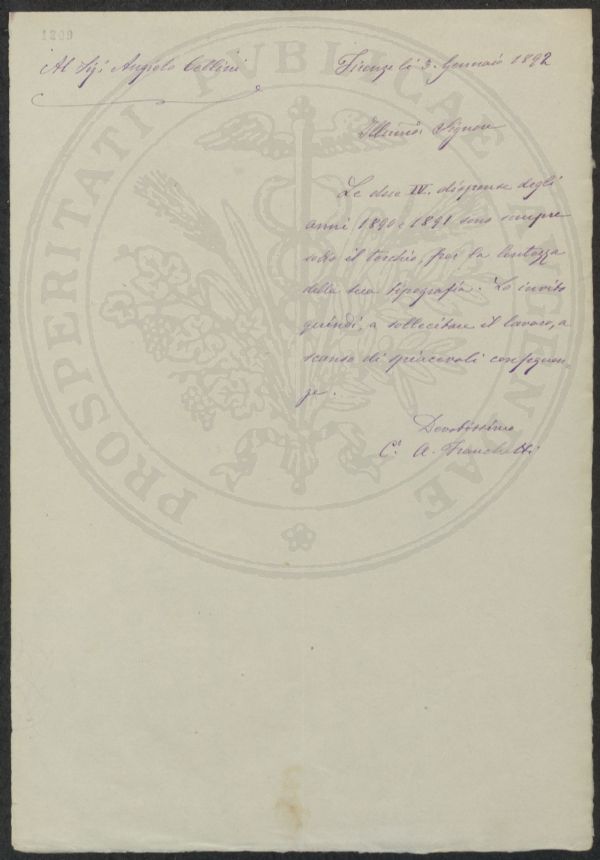 1309
Al Sigr Angiolo Cellini
Firenze li 3. Gennaio 1892
Illmo Signore
Le due IV. dispense degli
anni 1890 e 1891 sono sempre
sotto il torchio, per la lentezza
della sua tipografia. La invito
quindi, a sollecitare il lavoro, a
scanso di spiacevoli conseguen
ze.
Devotissimo
A. Franchetti
PROSPERITATI PUBLICAE AUGENDAE